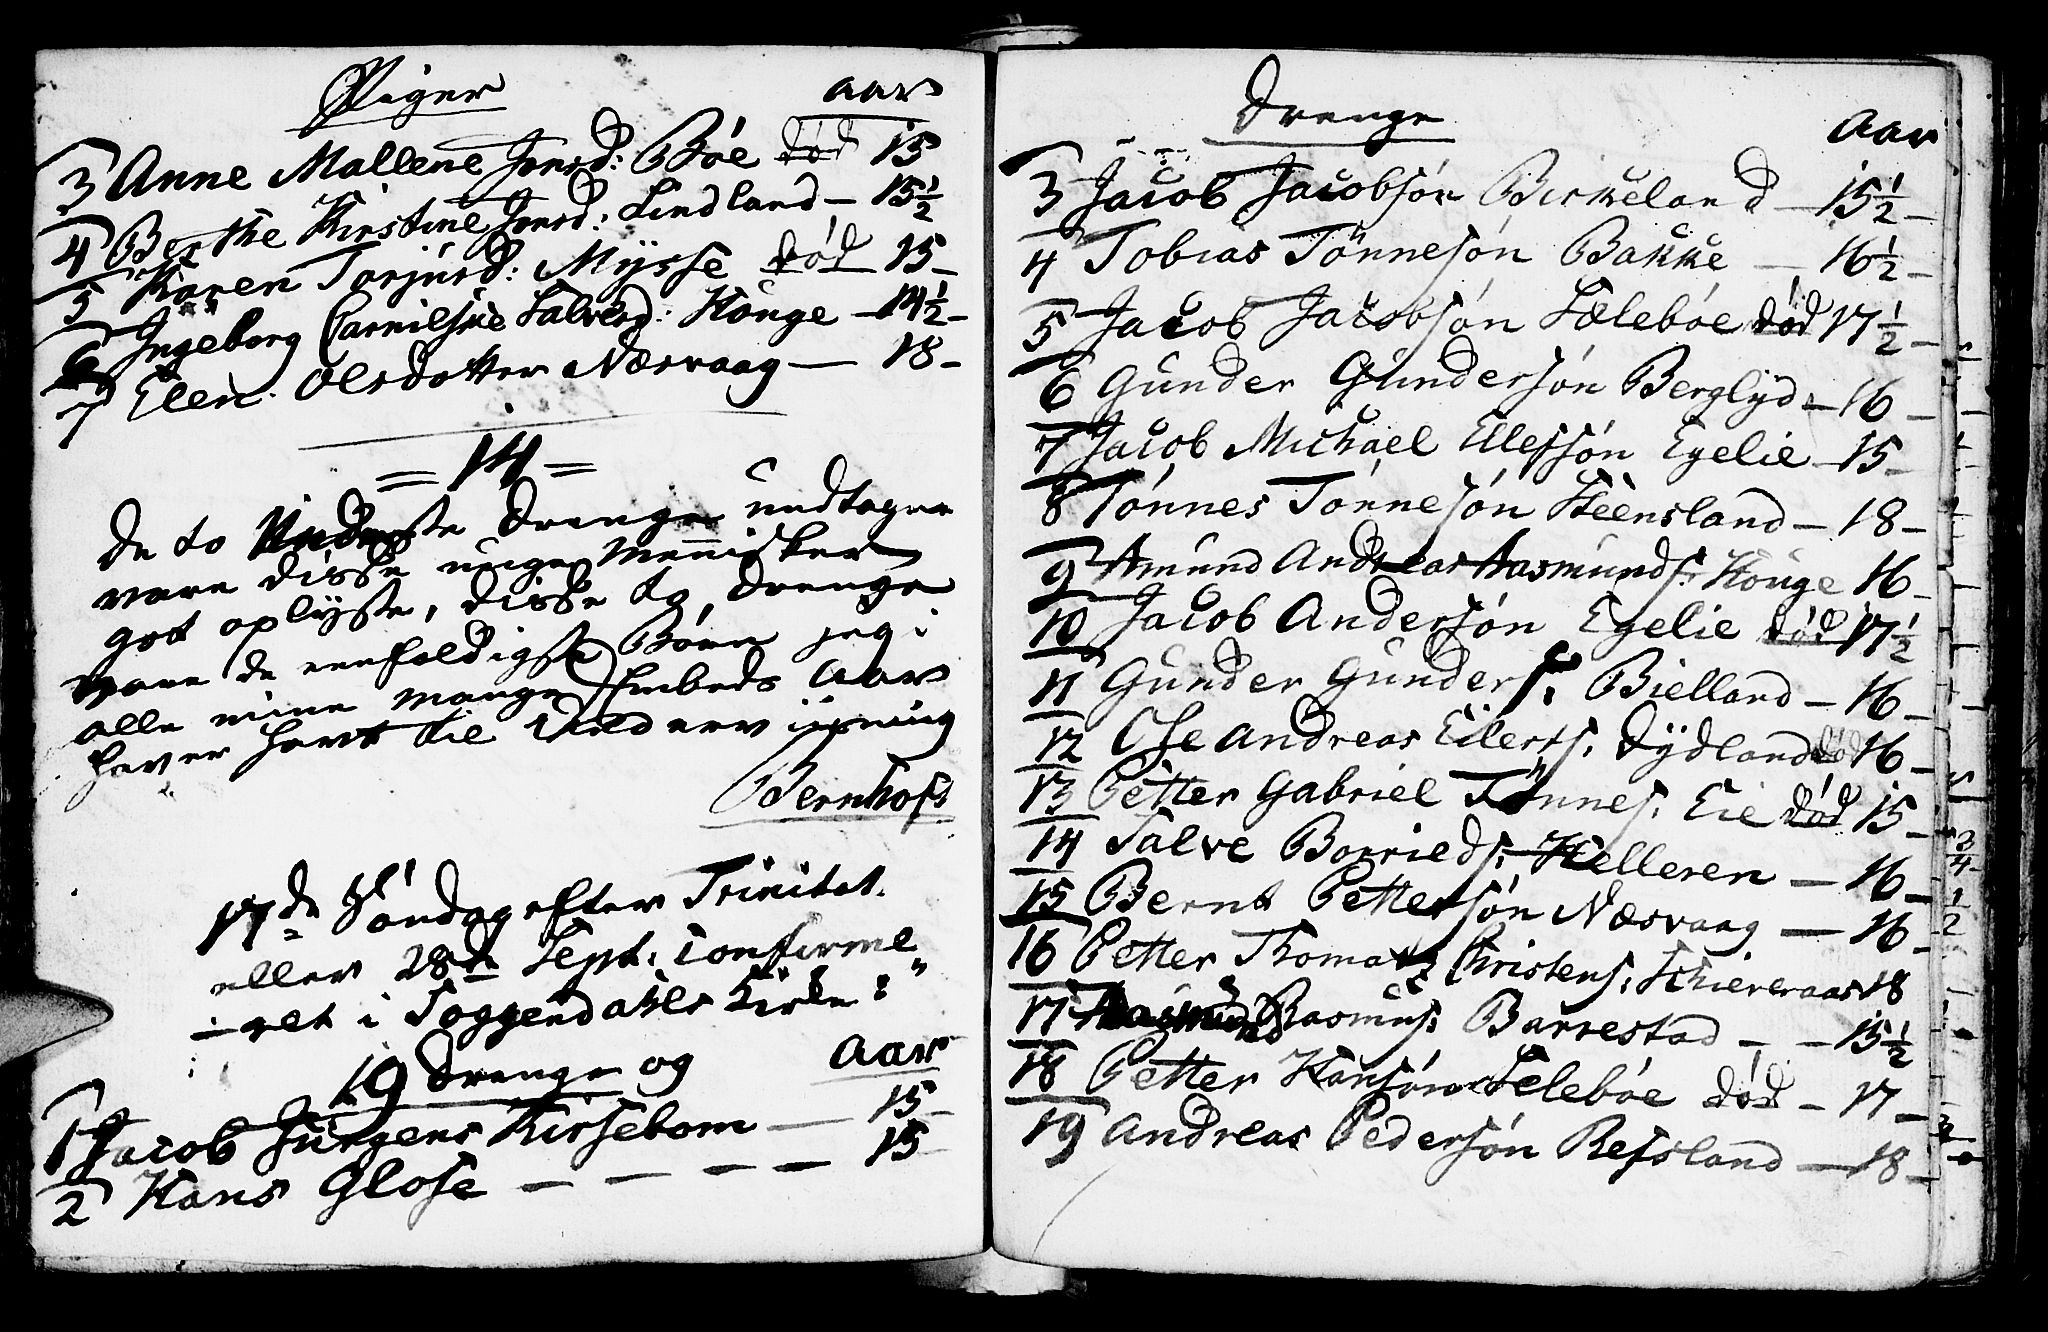 Piger Aar
3 Anne Mallene Jonsd: Bøe død 15
4 Berthe Kirstine Jonsd: Lindland – 15½
5 Karen Torjusd: Mysse død 15 –
6 Ingeborg Carnilsine Salvesd: Houge – 14½ –
7 Elen Olsdatter Næsvaag — 18 –
= 14 =
De to Nederste Drenge undtagne
vare disse unge Mennisker
got oplyste, disse to Drenge
vare de eenfoldigste Børn jeg i
alle mine mange Embeds Aar
haver havt til Underviisning
Bernhoft
17de Søndag efter Trinitat.
eller 28de Sept: Confirme
– ret i Soggendahls Kirke:
19 Drenge og Aar
1 Jacob Jürgens Kirsebom — 15 –
2 Hans Glose – – – – 15 –
Drenge Aar
3 Jacob Jacobsøn Birkeland – 15½ –
4 Tobias Tønnesøn Bakke – 16½ –
5 Jacob Jacobsøn Sælebøe død 17½ –
6 Gunder Gundersøn Berglyd – 16 –
7 Jacob Michael Ellefsøn Egelie – 15 –
8 Tønnes Tønnesøn Steensland – 18 –
9 Amund Andreas Aasmunds: Houge 16 –
10 Jacob Andersøn Egelie død 17½
11 Gunder Gunders: Bielland – 16 –
12 Ose Andreas Eilerts: Dydland død 16 –
13 Petter Gabriel Tønnes: Eie død 15 –
14 Salve Borrieds: Helleren – 16 –
15 Bernt Pettersøn Næsvaag — 16 –
16 Petter Thomas Christens: Schieveraas 18
17 Rasmus: Barrestad – – 15½
18 Petter Hansøn Selebøe død – 17 –
19 Andreas Pedersøn Refsland — 18 –